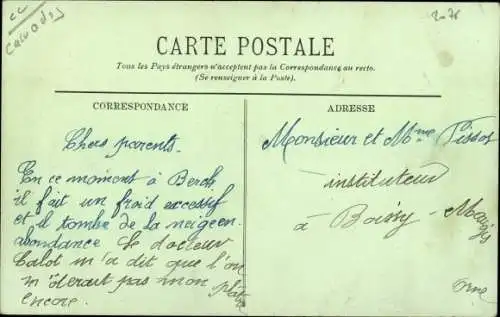 cc
Calvados
2076
CARTE POSTALE
Tous les Pays étrangers n'acceptent pas la Correspondance au recto.
(Se renseigner à la Poste).
CORRESPONDANCE
ADRESSE
Chers parents.
En ce moment à Berck
il fait un froid excessif
et il tombe de la neige en
abondance Le docteur
Calot m'a dit que l'on
m'ôterait pas mon
plâtre
encore.
Monsieur et Mme Tissot
instituteur
à Boissy - Maugis
Orne